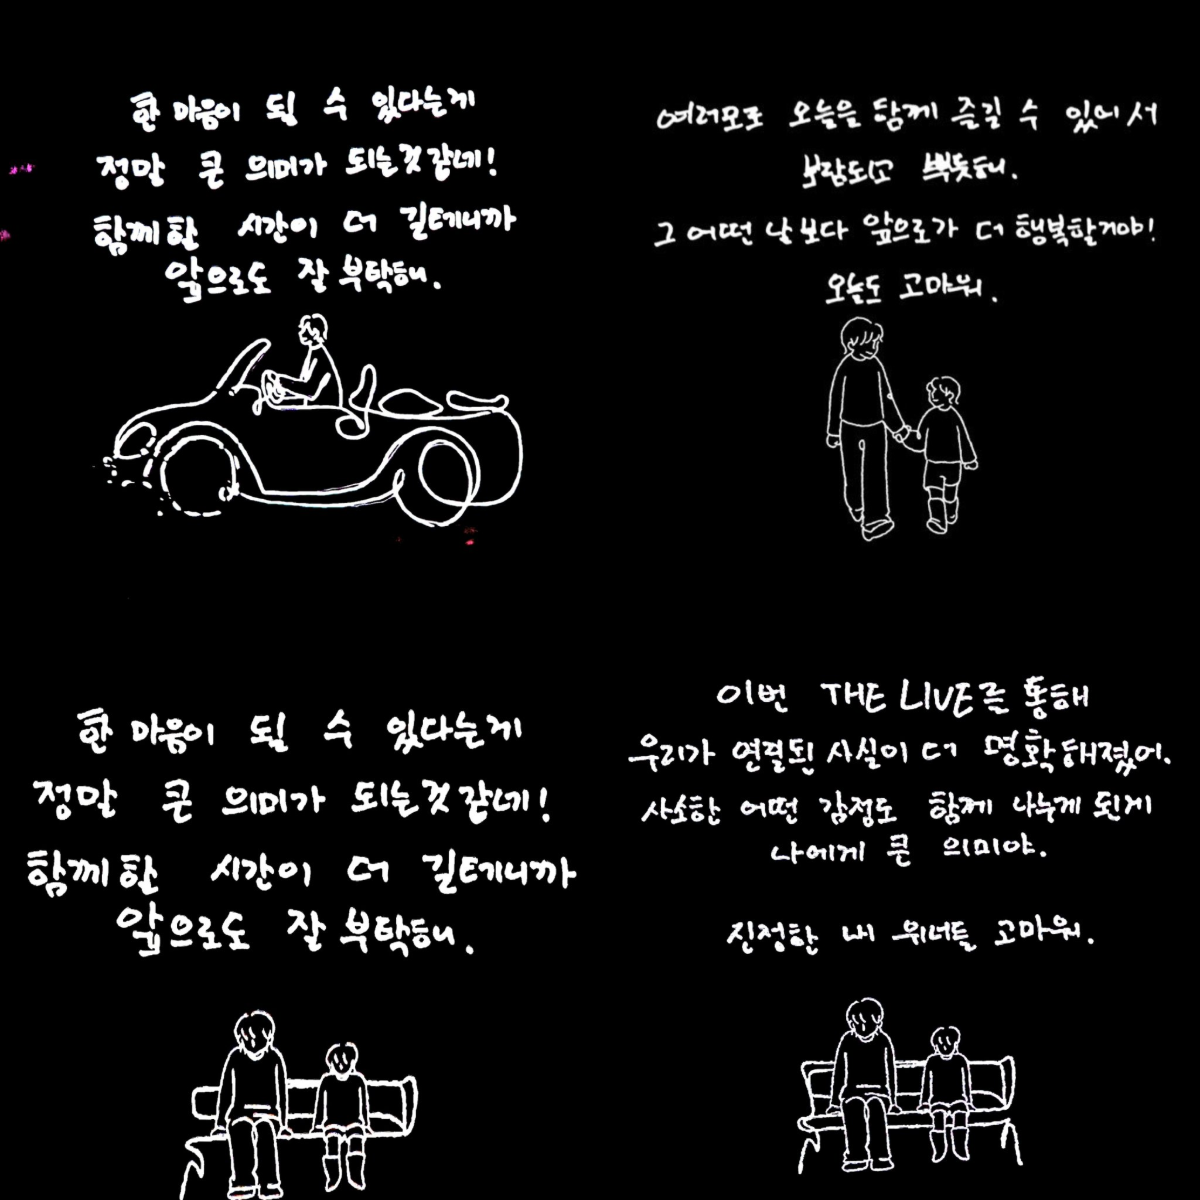 한 마음이 될 수 있다는게
정말 큰 의미가 되는것 같네!
함께한 시간이 더 길테니까
앞으로도 잘 부탁해.
여러모로 오늘을 함께 즐길 수 있어서
보람되고 뿌듯해.
그 어떤 날보다 앞으로가 더 행복할거야!
오늘도 고마워.
한 마음이 될 수 있다는게
정말 큰 의미가 되는것 같네!
함께한 시간이 더 길테니까
앞으로도 잘 부탁해.
이번 THE LIVE를 통해
우리가 연결된 사실이 더 명확해졌어.
사소한 어떤 감정도 함께 나누게 된게
나에게 큰 의미야.
진정한 내 위너들 고마워.